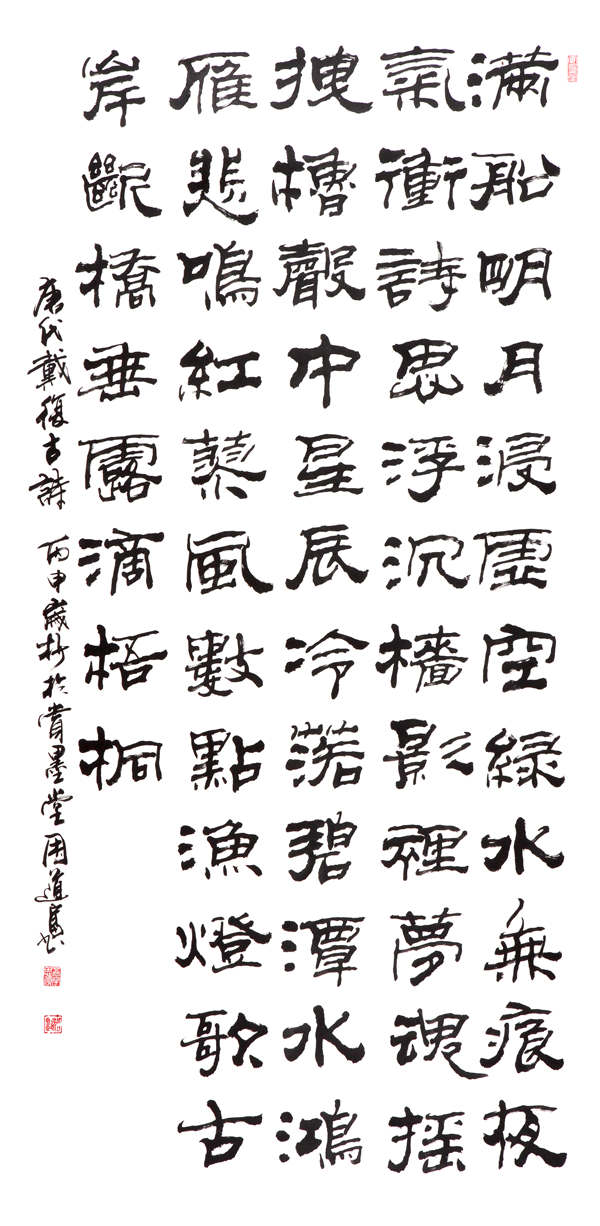 满船明月浸虚空綠水無痕夜
氣衝詩思浮沉檣影裡夢魂摇
拽櫓聲中星辰冷落碧潭水鴻
雁悲鳴紅蓼風數點漁燈歌古
岸斷橋垂露滴梧桐
唐代戴復古詩 丙申歲杪於賞墨堂周道